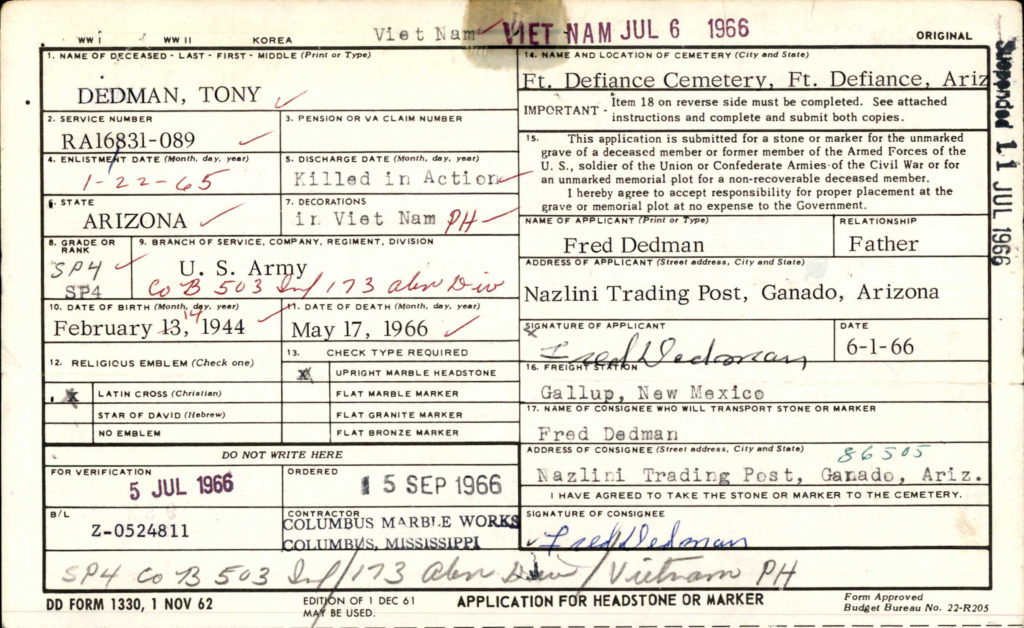 WW I WW II KOREA Viet Nam VIET NAM JUL 6 1966 ORIGINAL
1. NAME OF DECEASED - LAST - FIRST - MIDDLE (Print or Type)
DEDMAN, TONY
2. SERVICE NUMBER
RA16831-089
3. PENSION OR VA CLAIM NUMBER
4. ENLISTMENT DATE (Month, day, year)
1-22-65
5. DISCHARGE DATE (Month, day, year)
Killed in Action
6. STATE
ARIZONA
7. DECORATIONS
in Viet Nam PH
8. GRADE OR
RANK
SP4
SP4
9. BRANCH OF SERVICE, COMPANY, REGIMENT, DIVISION
U. S. Army
Co B 503 Inf 173 abn Div
10. DATE OF BIRTH (Month, day, year)
14
February 13, 1944
11. DATE OF DEATH (Month, day, year)
May 17, 1966
12. RELIGIOUS EMBLEM (Check one)
x LATIN CROSS (Christian)
STAR OF DAVID (Hebrew)
NO EMBLEM
13. CHECK TYPE REQUIRED
x UPRIGHT MARBLE HEADSTONE
FLAT MARBLE MARKER
FLAT GRANITE MARKER
FLAT BRONZE MARKER
DO NOT WRITE HERE
FOR VERIFICATION
5 JUL 1966
ORDERED
15 SEP 1966
B/L
Z-0524811
CONTRACTOR
COLUMBUS MARBLE WORKS
COLUMBUS, MISSISSIPPI
14. NAME AND LOCATION OF CEMETERY (City and State)
Ft. Defiance Cemetery, Ft. Defiance, Ariz
IMPORTANT - Item 18 on reverse side must be completed. See attached
instructions and complete and submit both copies.
15. This application is submitted for a stone or marker for the unmarked
grave of a deceased member or former member of the Armed Forces of the
U. S., soldier of the Union or Confederate Armies of the Civil War or for
an unmarked memorial plot for a non-recoverable deceased member.
I hereby agree to accept responsibility for proper placement at the
grave or memorial plot at no expense to the Government.
NAME OF APPLICANT (Print or Type)
Fred Dedman
RELATIONSHIP
Father
ADDRESS OF APPLICANT (Street address, City and State)
Nazlini Trading Post, Ganado, Arizona
SIGNATURE OF APPLICANT
x Fred Dedman
DATE
6-1-66
16. FREIGHT STATION
Gallup, New Mexico
17. NAME OF CONSIGNEE WHO WILL TRANSPORT STONE OR MARKER
Fred Dedman
ADDRESS OF CONSIGNEE (Street address, City and State)
86505
Nazlini Trading Post, Ganado, Ariz.
I HAVE AGREED TO TAKE THE STONE OR MARKER TO THE CEMETERY.
SIGNATURE OF CONSIGNEE
Fred Dedman
Suspended 11 JUL 1966
SP4 Co B 503 Inf/173 abn Div/Vietnam PH
DD FORM 1330, 1 NOV 62
EDITION OF 1 DEC 61
MAY BE USED.
APPLICATION FOR HEADSTONE OR MARKER
Form Approved
Budget Bureau No. 22-R205